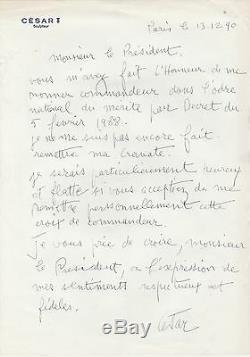 CÉSAR
Sculpteur
Paris le 13.12.90
Monsieur le Président.
vous m'avez fait l'Honneur de me
nommer commandeur dans l'odre
national du mérite par Decret du
5 février 1988.
je ne me suis pas encore fait
remettre ma cravate.
je serais particulierement heureux
et flatté si vous acceptiez de me
remettre personnellement cette
croix de commandeur.
Je vous prie de croire, monsieur
le President, a l'expression de
mes sentiments respectueux et
fideles.
César
© 123RF